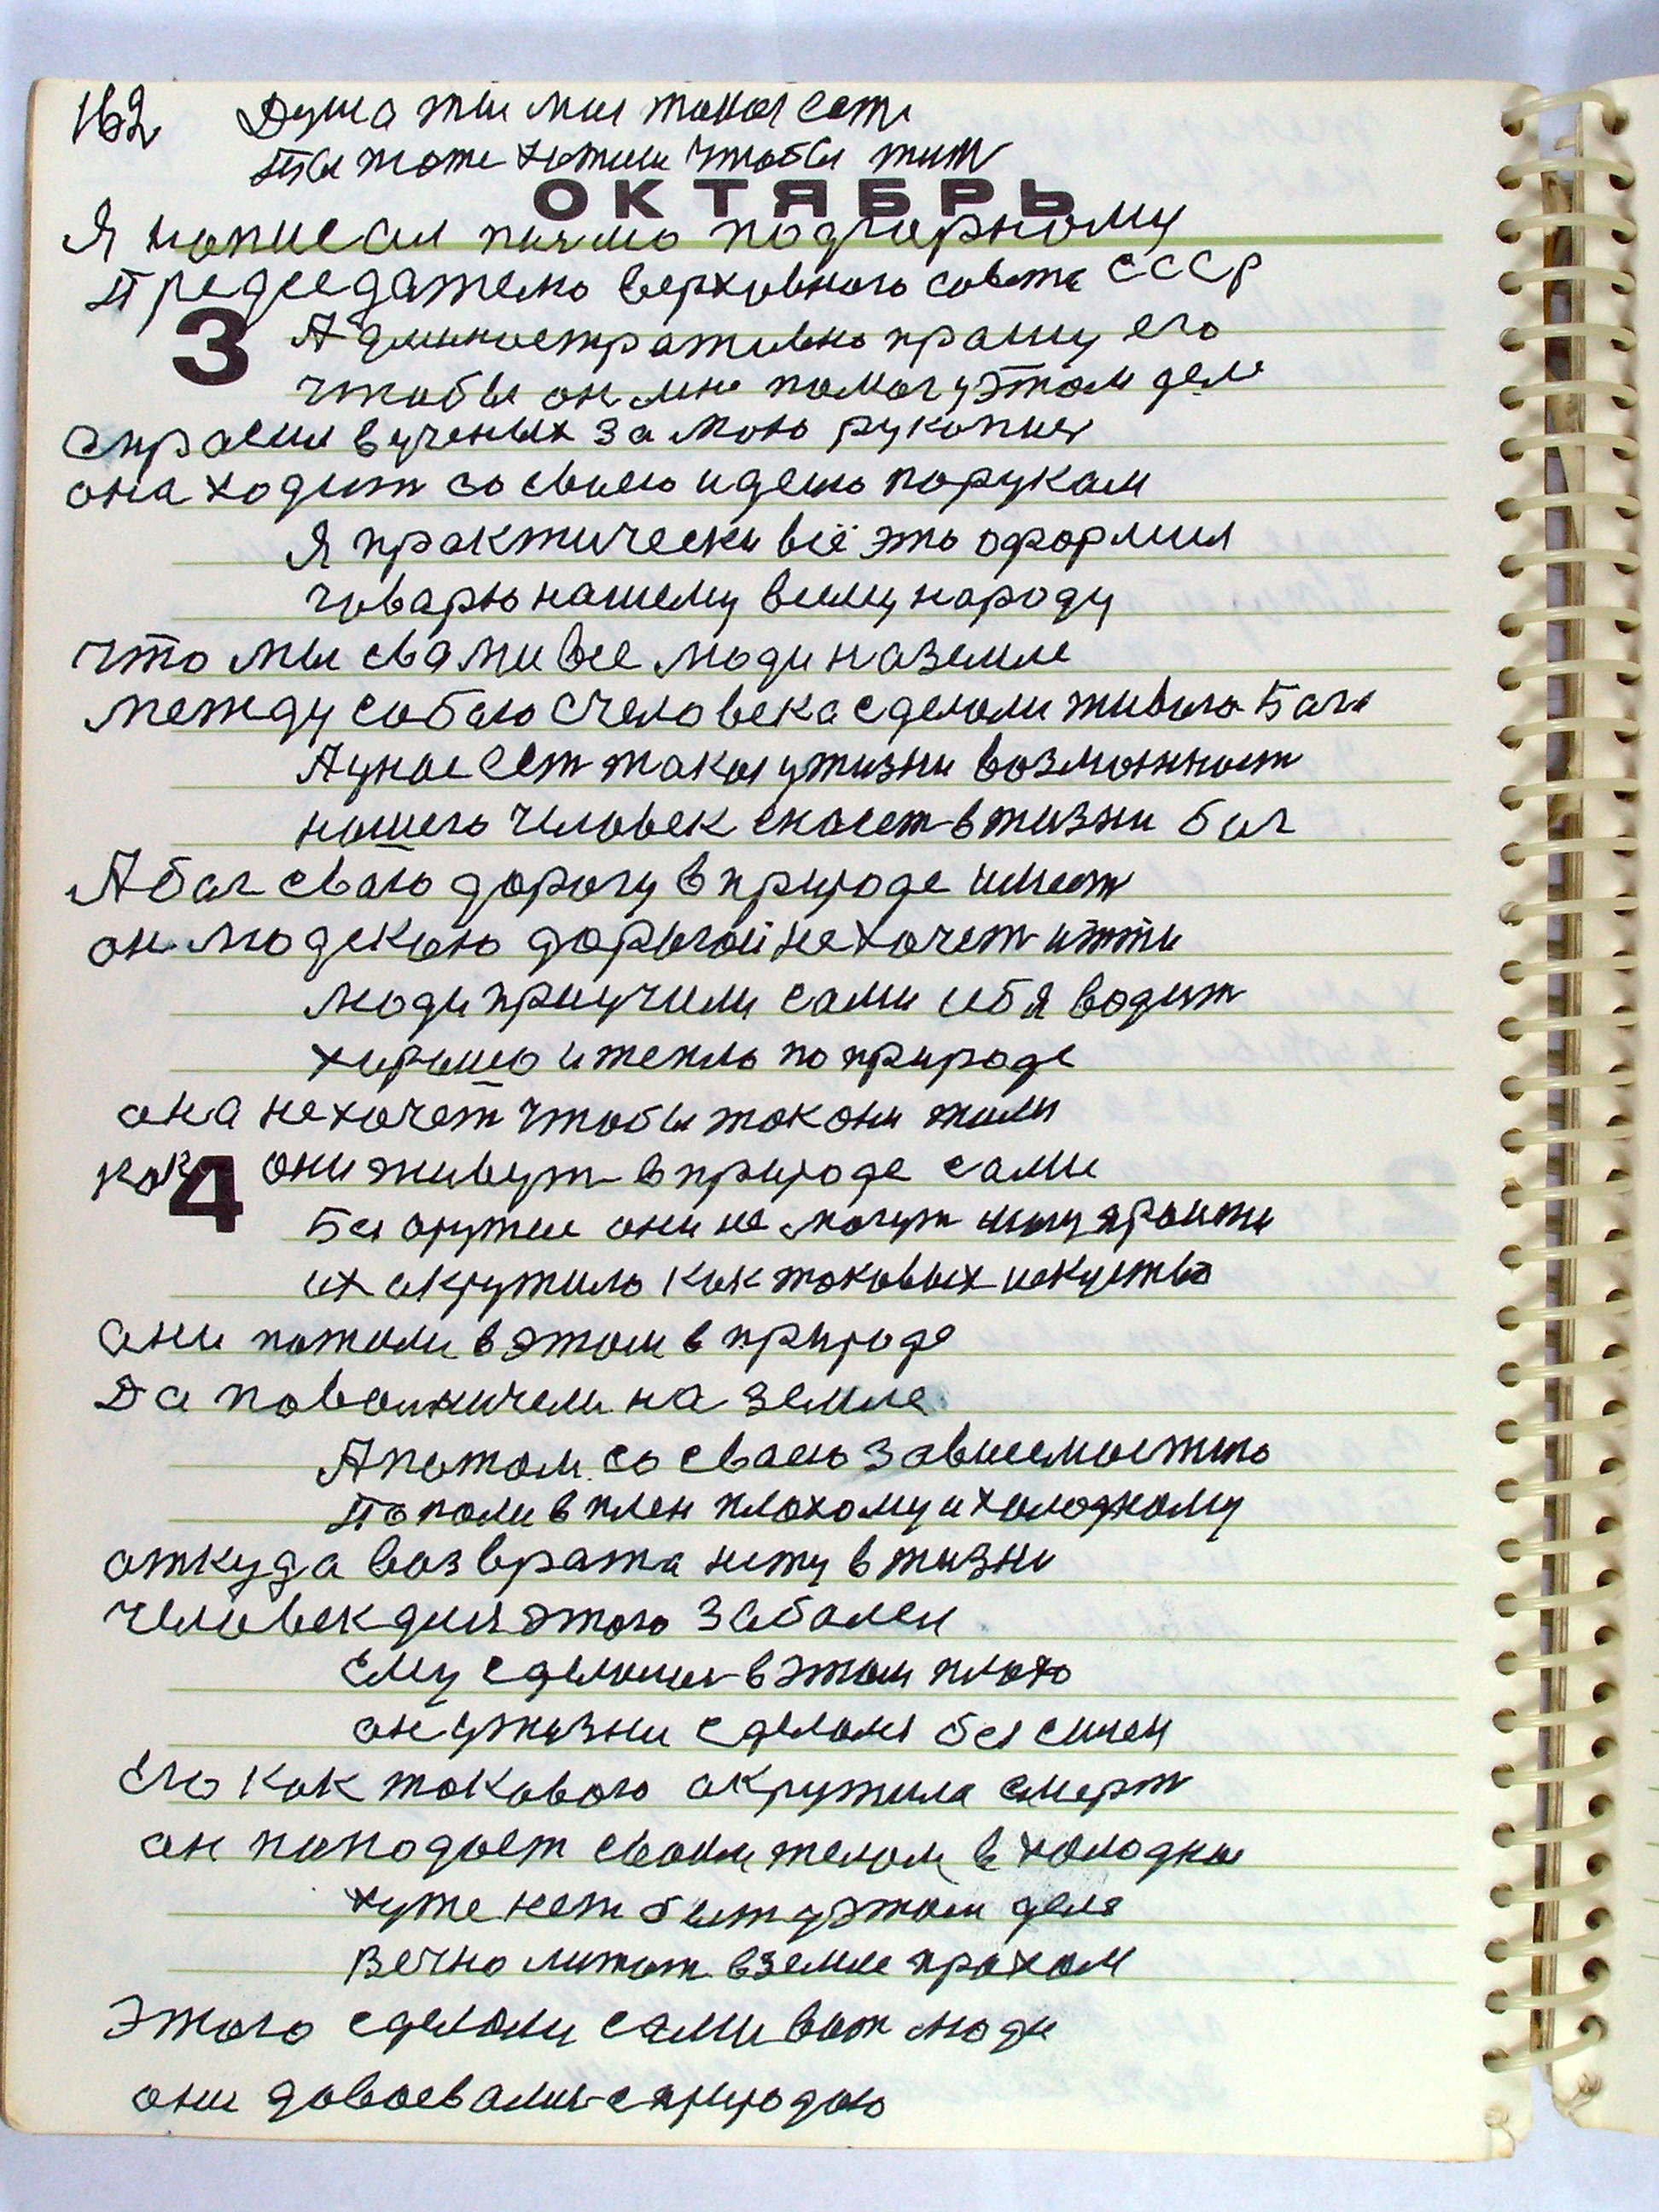 162 Душа ты мия такая сеть
Ты тоже хотиш чтобы жить
ОКТЯБРЬ
Я написал писмо подгорному
Председателю верховного совета СССР
3 Административно прашу его
чтобы он мне помог у этом деле
спрасил в ученых за мою рукопись
она ходит со своею идею порукам
Я практически всё это оформил
говарю нашему всиму народу
что мы свами все люди на земле
между собою счеловека сделали живого Бога
А у нас есть такая у жизни возможност
нашего человек спасет в жизни бог
А бог сваю дорогу в природе имеет
он людскою дорогой не хочет итти
люди приучили сами себя водит
хорошо и тепло по природе
она не хочет чтобы так они жили
как 4 они живут в природе сами
Без оружие они не могут
их окружило как таковых искуство
они пожили в этом в природе
Да поволничели на земле
А потом со сваею зависемостию
Попали в плен плохому и холодному
откуда возврата нету в жизни
человек для этого заболел
Ему сделалось в этом плохо
он у жизни сделался без силен
Его как токового окружила смерт
он попадает своим телом в холодное
хуже нет быт у этом деле
Вечно лижат в земле прахом
Этого сделали сами вот люди
они довоевались с природою